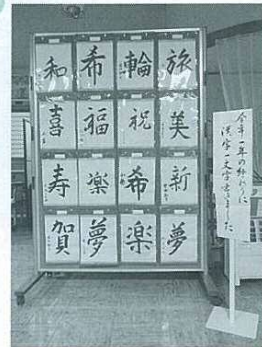 和 希 輪 旅
喜 福 祝 美
寿 楽 希 新
賀 夢 楽 夢
今年一年の終わりに
漢字一文字書きました